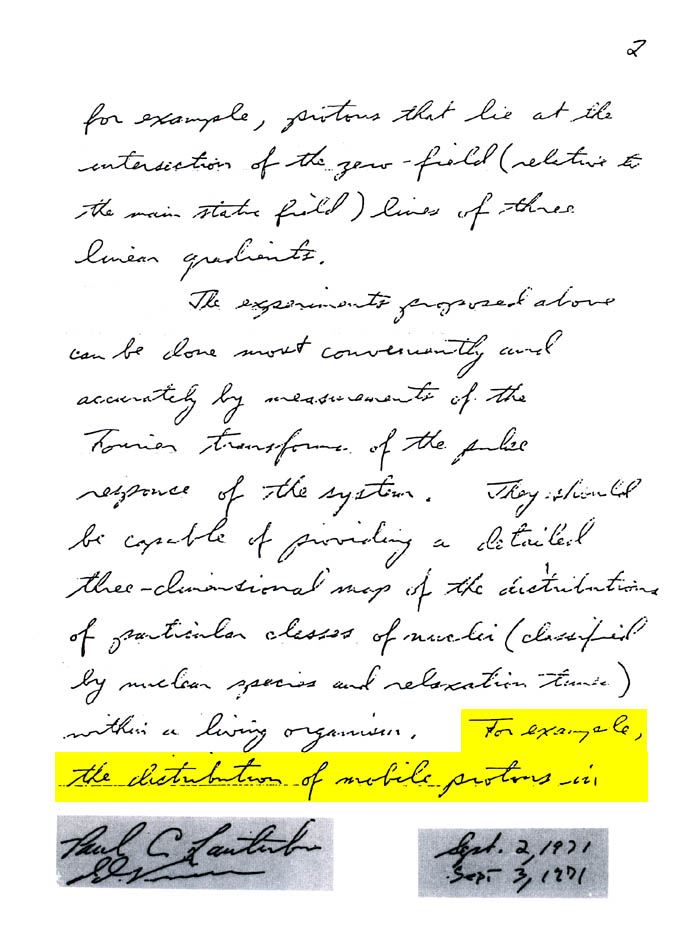 2
for example, protons that lie at the
intersection of the zero-field (relative to
the main static field) lines of three
linear gradients.
The experiments proposed above
can be done most conveniently and
accurately by measurements of the
Fourier transform of the pulse
response of the system. They should
be capable of providing a detailed
three-dimensional map of the distributions
of particular classes of nuclei (classified
by nuclear species and relaxation times)
within a living organism. For example,
the distribution of mobile protons in
Paul C. Lauterbur Sept. 2, 1971
Sept 3, 1971